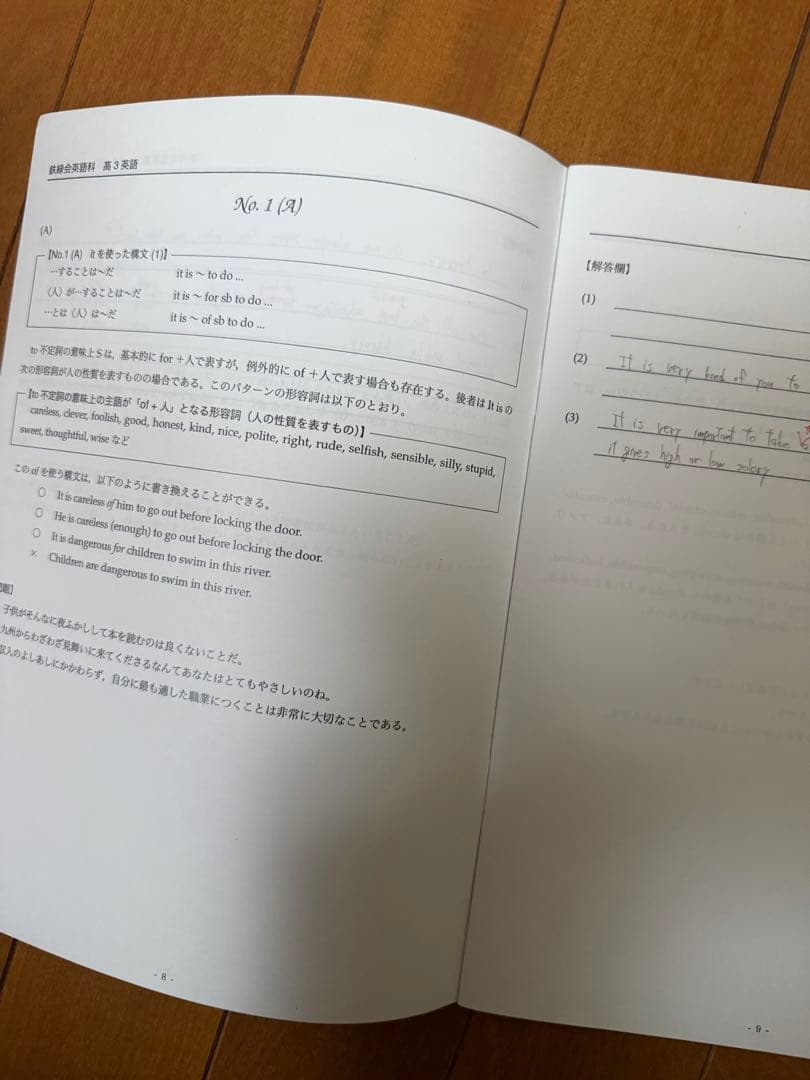 鉄緑会英語科 高3英語
No. 1 (A)
(A)
【No.1 (A) itを使った構文 (1)】
…することは〜だ it is 〜 to do ...
〈人〉が…することは〜だ it is 〜 for sb to do ...
…とは〈人〉は〜だ it is 〜 of sb to do ...
to 不定詞の意味上 S は，基本的に for ＋人で表すが，例外的に of ＋人で表す場合も存在する。後者は It is の
次の形容詞が人の性質を表すものの場合である。このパターンの形容詞は以下のとおり。
【to 不定詞の意味上の主語が「of + 人」となる形容詞（人の性質を表すもの）】
careless, clever, foolish, good, honest, kind, nice, polite, right, rude, selfish, sensible, silly, stupid,
sweet, thoughtful, wise など
この of を使う構文は，以下のように書き換えることができる。
○ It is careless of him to go out before locking the door.
○ He is careless (enough) to go out before locking the door.
○ It is dangerous for children to swim in this river.
× Children are dangerous to swim in this river.
題】
子供がそんなに夜ふかしして本を読むのは良くないことだ。
九州からわざわざ見舞いに来てくださるなんてあなたはとてもやさしいのね。
収入のよしあしにかかわらず，自分に最も適した職業につくことは非常に大切なことである。
- 8 -
【解答欄】
(1)
(2) It is very kind of you to
(3) It is very important to take
it gives high or low solory
- 9 -